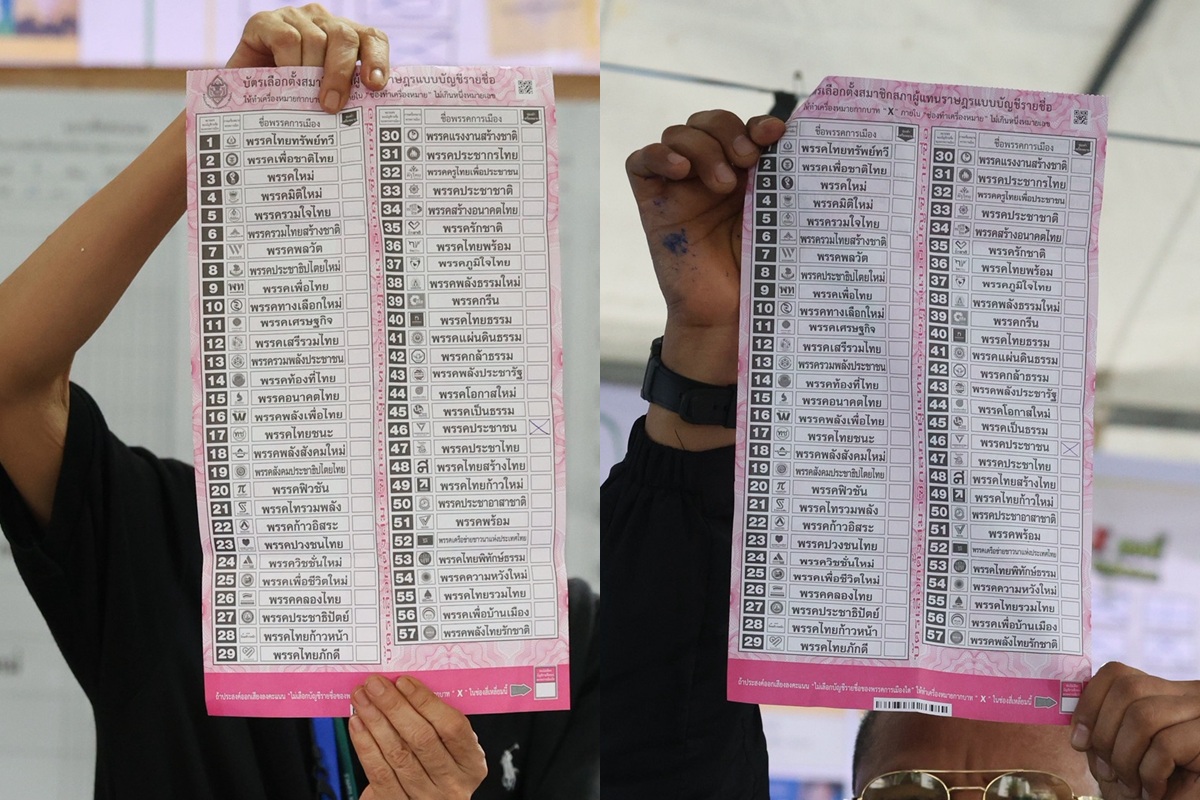 บัตรเลือกตั้งสมา
ผู้
ราษฎรแบบบัญชีรายชื่อ
ให้ทำเครื่องหมายกากบาท
ายใน "ช่องทำเครื่องหมาย" ไม่เกินหนึ่งหมายเลข
ชื่อพรรคการเมือง
1 พรรคไทยทรัพย์ทวี
2 พรรคเพื่อชาติไทย
3 พรรคใหม่
4 พรรคมิติใหม่
5 พรรครวมใจไทย
6 พรรครวมไทยสร้างชาติ
7 พรรคพลวัต
8 พรรคประชาธิปไตยใหม่
9 พรรคเพื่อไทย
10 พรรคทางเลือกใหม่
11 พรรคเศรษฐกิจ
12 พรรคเสรีรวมไทย
13 พรรครวมพลังประชาชน
14 พรรคท้องที่ไทย
15 พรรคอนาคตไทย
16 พรรคพลังเพื่อไทย
17 พรรคไทยชนะ
18 พรรคพลังสังคมใหม่
19 พรรคสังคมประชาธิปไตยไทย
20 พรรคฟิวชัน
21 พรรคไทรวมพลัง
22 พรรคก้าวอิสระ
23 พรรคปวงชนไทย
24 พรรควิชชั่นใหม่
25 พรรคเพื่อชีวิตใหม่
26 พรรคคลองไทย
27 พรรคประชาธิปัตย์
28 พรรคไทยก้าวหน้า
29 พรรคไทยภักดี
ชื่อพรรคการเมือง
30 พรรคแรงงานสร้างชาติ
31 พรรคประชากรไทย
32 พรรคครูไทยเพื่อประชาชน
33 พรรคประชาชาติ
34 พรรคสร้างอนาคตไทย
35 พรรครักชาติ
36 พรรคไทยพร้อม
37 พรรคภูมิใจไทย
38 พรรคพลังธรรมใหม่
39 พรรคกรีน
40 พรรคไทยธรรม
41 พรรคแผ่นดินธรรม
42 พรรคกล้าธรรม
43 พรรคพลังประชารัฐ
44 พรรคโอกาสใหม่
45 พรรคเป็นธรรม
46 พรรคประชาชน X
47 พรรคประชาไทย
48 พรรคไทยสร้างไทย
49 พรรคไทยก้าวใหม่
50 พรรคประชาอาสาชาติ
51 พรรคพร้อม
52 พรรคเครือข่ายชาวนาแห่งประเทศไทย
53 พรรคไทยพิทักษ์ธรรม
54 พรรคความหวังใหม่
55 พรรคไทยรวมไทย
56 พรรคเพื่อบ้านเมือง
57 พรรคพลังไทยรักชาติ
ถ้าประสงค์ออกเสียงลงคะแนน "ไม่เลือกบัญชีรายชื่อของพรรคการเมืองใด" ให้ทำเครื่องหมายกากบาท " X " ในช่องสี่เหลี่ยมนี้
รเลือกตั้งสมาชิกสภาผู้แทนราษฎรแบบบัญชีรายชื่อ
ให้ทำเครื่องหมายกากบาท " X " ภายใน "ช่องทำเครื่องหมาย" ไม่เกินหนึ่งหมายเลข
ชื่อพรรคการเมือง
พรรคไทยทรัพย์ทวี
2 พรรคเพื่อชาติไทย
3 พรรคใหม่
4 พรรคมิติใหม่
5 พรรครวมใจไทย
6 พรรครวมไทยสร้างชาติ
7 พรรคพลวัต
8 พรรคประชาธิปไตยใหม่
9 พรรคเพื่อไทย
10 พรรคทางเลือกใหม่
11 พรรคเศรษฐกิจ
12 พรรคเสรีรวมไทย
13 พรรครวมพลังประชาชน
14 พรรคท้องที่ไทย
15 พรรคอนาคตไทย
16 พรรคพลังเพื่อไทย
17 พรรคไทยชนะ
18 พรรคพลังสังคมใหม่
19 พรรคสังคมประชาธิปไตยไทย
20 พรรคฟิวชัน
21 พรรคไทรวมพลัง
22 พรรคก้าวอิสระ
23 พรรคปวงชนไทย
24 พรรควิชชั่นใหม่
25 พรรคเพื่อชีวิตใหม่
26 พรรคคลองไทย
27 พรรคประชาธิปัตย์
28 พรรคไทยก้าวหน้า
29 พรรคไทยภักดี
ชื่อพรรคการเมือง
30 พรรคแรงงานสร้างชาติ
31 พรรคประชากรไทย
32 พรรคครูไทยเพื่อประชาชน
33 พรรคประชาชาติ
34 พรรคสร้างอนาคตไทย
35 พรรครักชาติ
36 พรรคไทยพร้อม
37 พรรคภูมิใจไทย
38 พรรคพลังธรรมใหม่
39 พรรคกรีน
40 พรรคไทยธรรม
41 พรรคแผ่นดินธรรม
42 พรรคกล้าธรรม
43 พรรคพลังประชารัฐ
44 พรรคโอกาสใหม่
45 พรรคเป็นธรรม
46 พรรคประชาชน X
47 พรรคประชาไทย
48 พรรคไทยสร้างไทย
49 พรรคไทยก้าวใหม่
50 พรรคประชาอาสาชาติ
51 พรรคพร้อม
52 พรรคเครือข่ายชาวนาแห่งประเทศไทย
53 พรรคไทยพิทักษ์ธรรม
54 พรรคความหวังใหม่
55 พรรคไทยรวมไทย
56 พรรคเพื่อบ้านเมือง
57 พรรคพลังไทยรักชาติ
ถ้าประสงค์ออกเสียงลงคะแนน "ไม่เลือกบัญชีรายชื่อของพรรคการเมืองใด" ให้ทำเครื่องหมายกากบาท " X " ในช่องสี่เหลี่ยมนี้